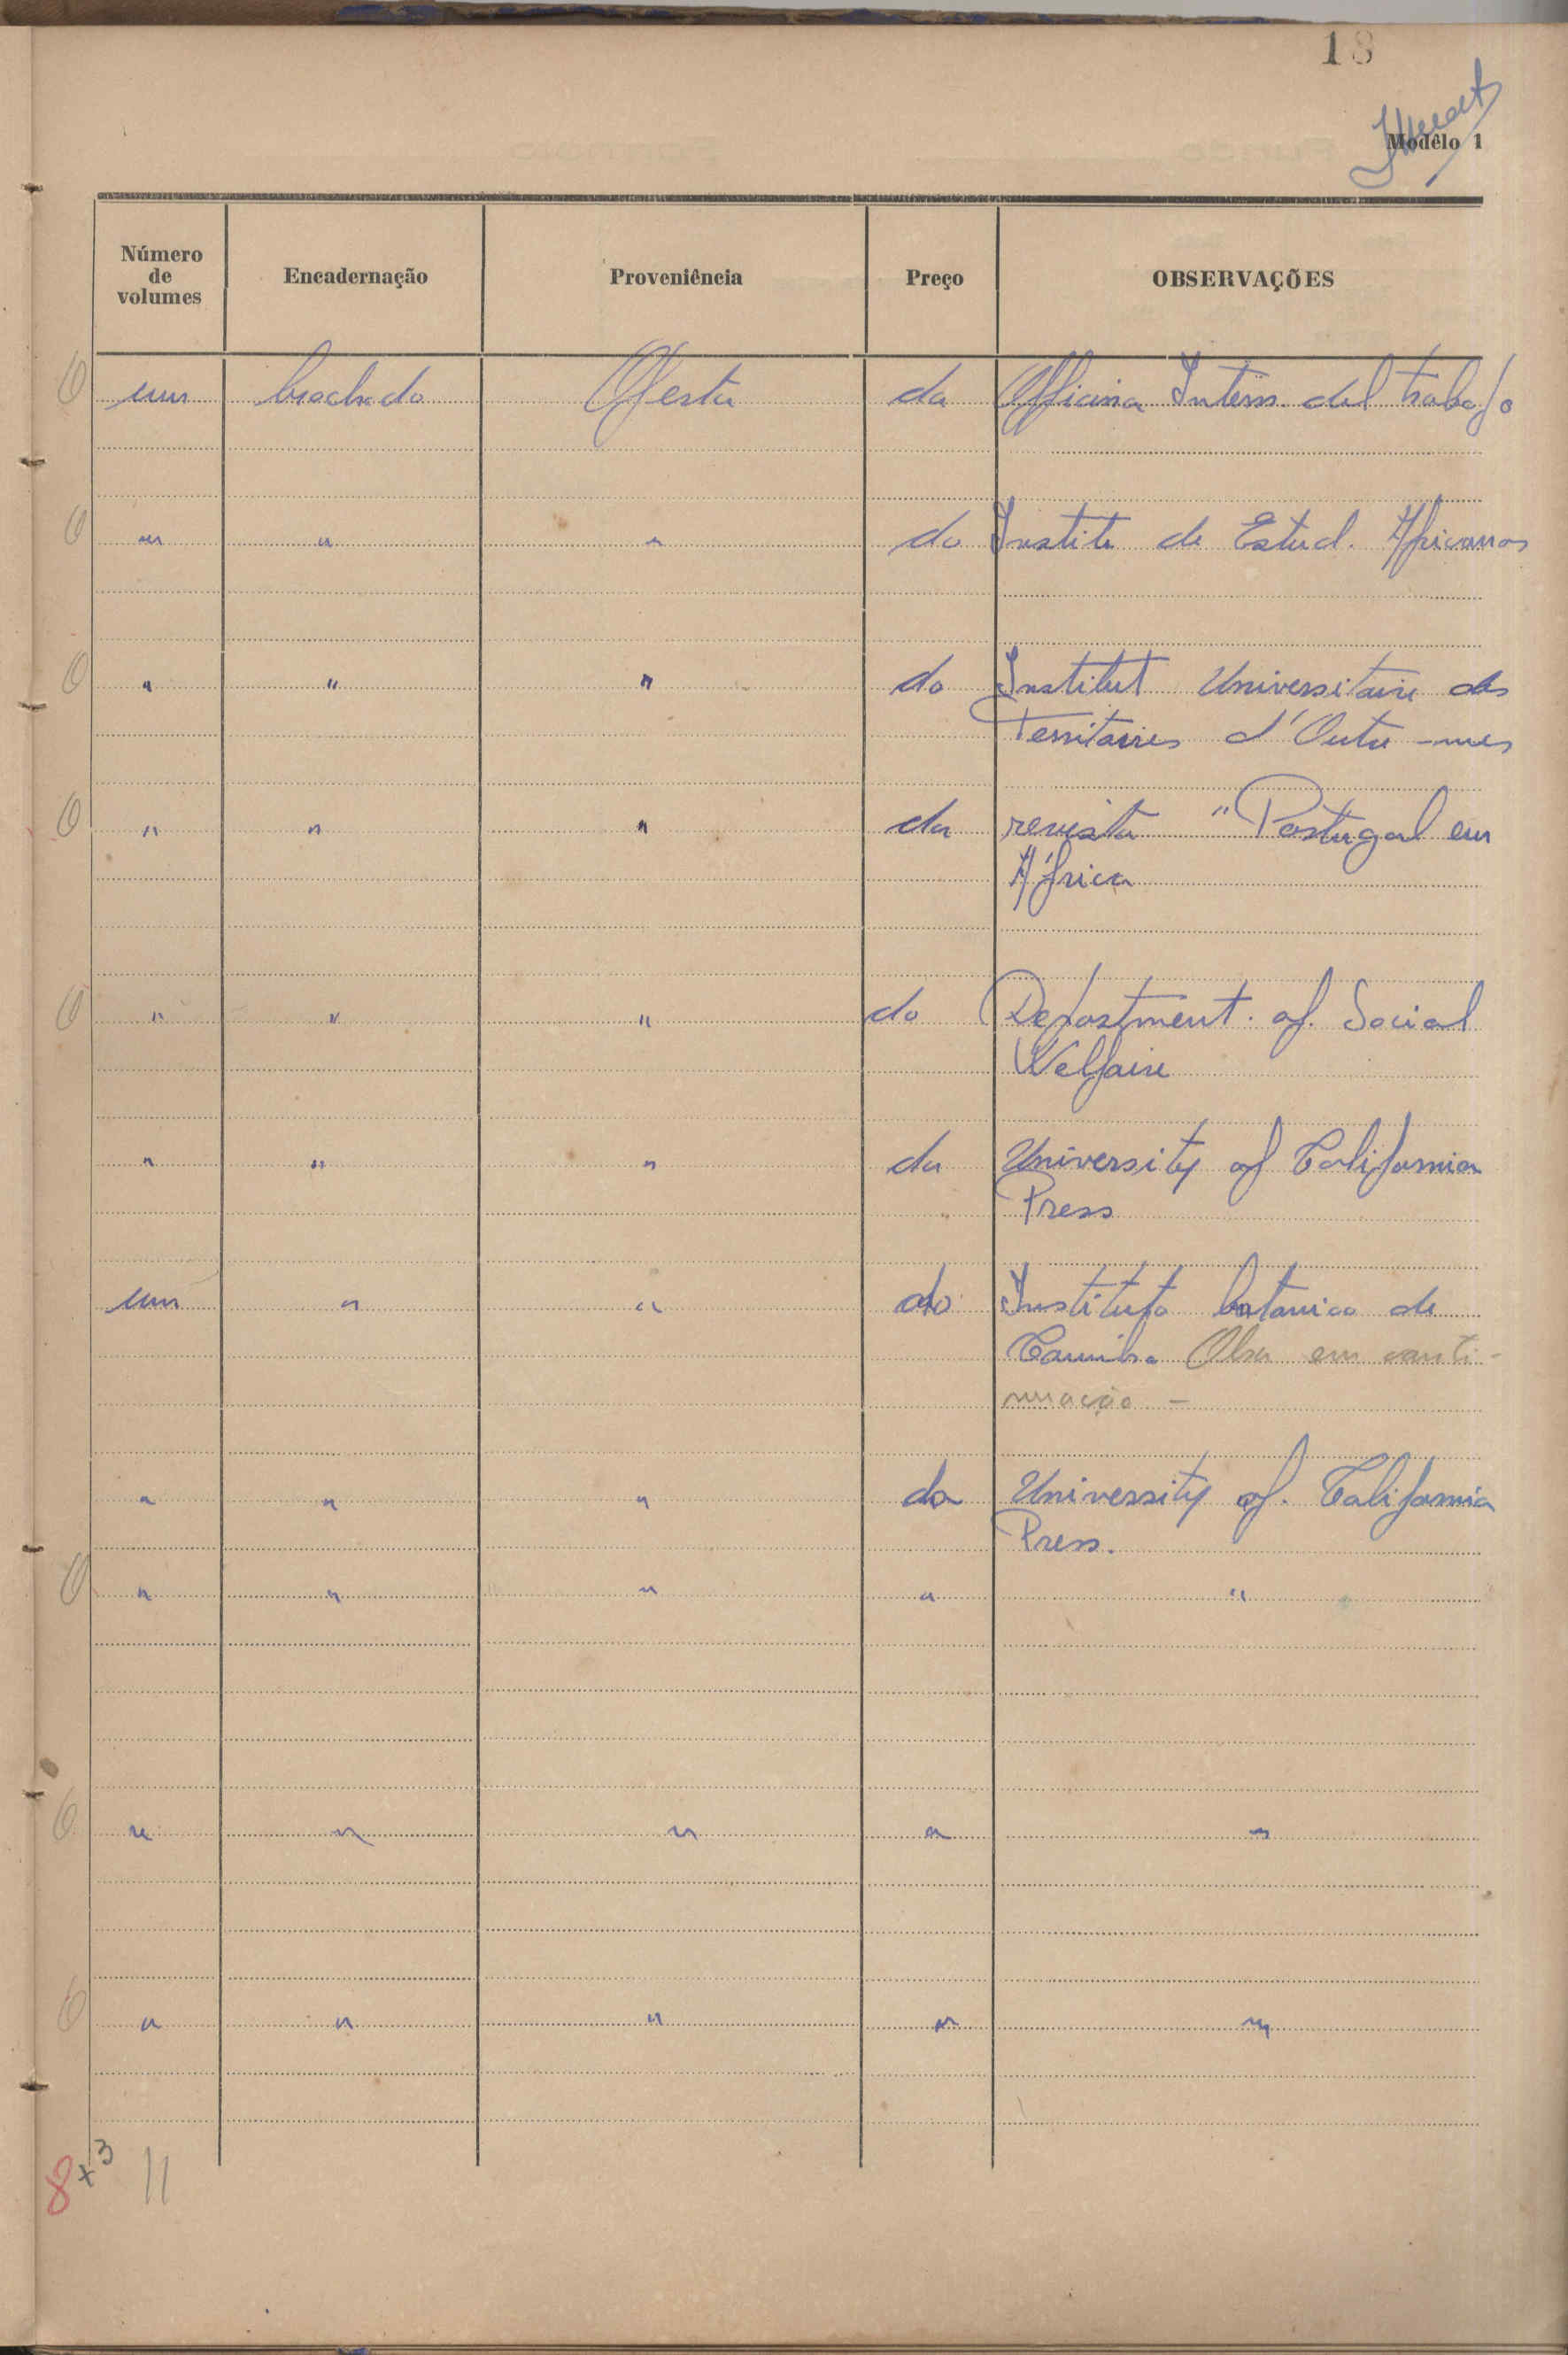 18
Modêlo 1
Número de volumes Encadernação Proveniência Preço OBSERVAÇÕES
um brochado Oferta da Officina Intern. del trabajo
" " " do Institt de Estud. Africanos
" " " do Institut Universitaire des
Territoires d'Outre-mer
" " " da revista "Portugal em
África
" " " do Department. of. Social
Welfaire
" " " da University of California
Press
um " " do Instituto botanico de
Coimbra Obra em conti-
nuação -
" " " da University of. California
Press.
" " " " "
" " " " "
" " " " "
8+3 11